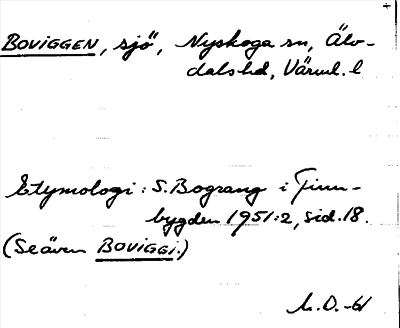 BOVIGGEN, sjö, Nyskoga sn, Älv-
dals hd, Värml. l
Etymologi: S. Bograng i Finn-
bygden 1951:2, sid. 18.
(Se även BOVIGGI.)
L.O. -61